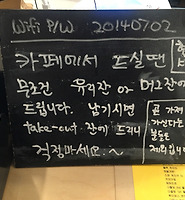 Wifi P/W 20140702
카페에서 드실땐
무조건 유리잔 or 머그잔에
드립니다. 남기시면
take-out 잔에 드리니
걱정마세요.~
곧 가져
가신다는
분들은
제외입니다